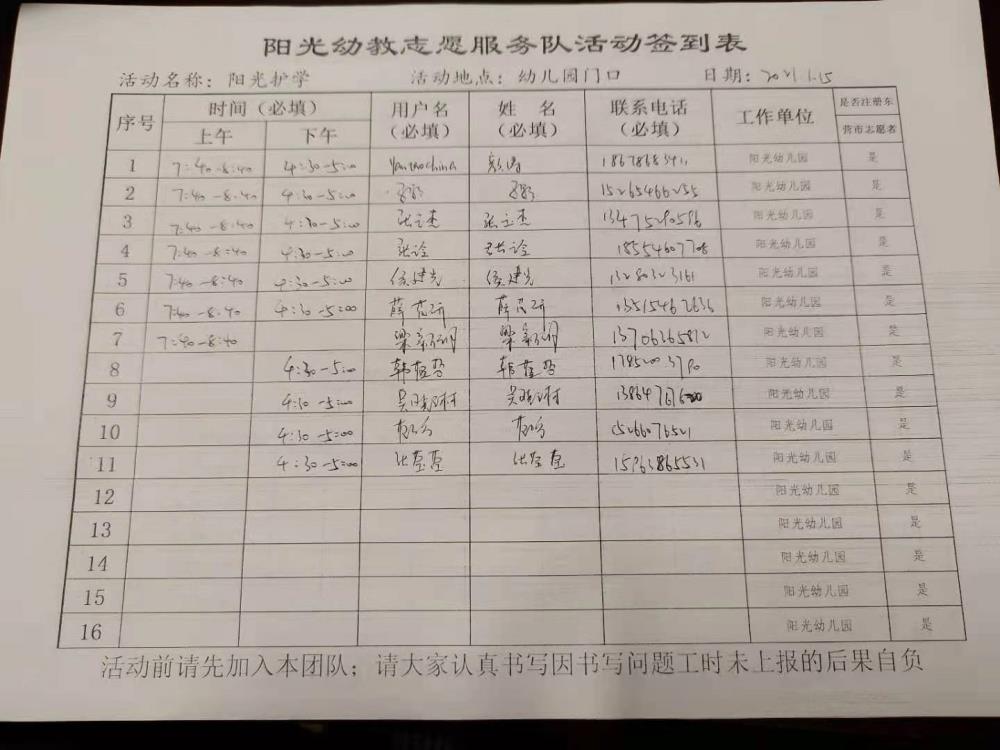 阳光幼教志愿服务队活动签到表
活动名称：阳光护学 活动地点：幼儿园门口 日期：2021.1.15
序号 时间（必填） 用户名（必填） 姓名（必填） 联系电话（必填） 工作单位 是否注册东营市志愿者
上午 下午
1 7:40-8:40 4:30-5:00 阳光幼儿园 是
2 7:40-8:40 4:30-5:00 15265466235 阳光幼儿园 是
3 7:40-8:40 4:30-5:00 张立杰 张立杰 阳光幼儿园 是
4 7:40-8:40 4:30-5:00 张诠 张诠 18554607708 阳光幼儿园 是
5 7:40-8:40 4:30-5:00 侯建光 侯建光 13280323161 阳光幼儿园 是
6 7:40-8:40 4:30-5:00 13515467636 阳光幼儿园 是
7 7:40-8:40 13706365812 阳光幼儿园 是
8 4:30-5:00 阳光幼儿园 是
9 4:30-5:00 阳光幼儿园 是
10 4:30-5:00 15266076521 阳光幼儿园 是
11 4:30-5:00 15963865531 阳光幼儿园 是
12 阳光幼儿园 是
13 阳光幼儿园 是
14 阳光幼儿园 是
15 阳光幼儿园 是
16 阳光幼儿园 是
活动前请先加入本团队；请大家认真书写因书写问题工时未上报的后果自负